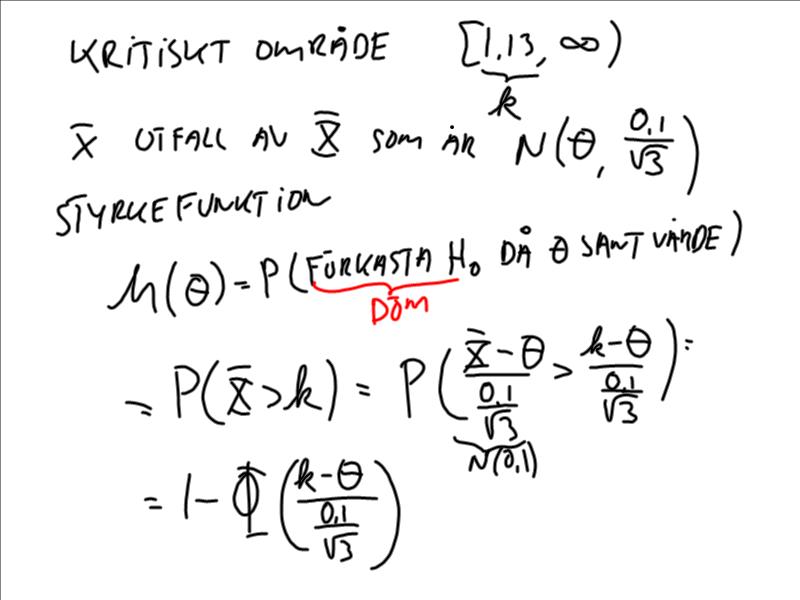 KRITISKT OMRÅDE [1,13, ∞)
k
x̄ UTFALL AV X̄ SOM ÄR N(θ, 0,1/√3)
STYRKEFUNKTION
h(θ) = P(FÖRKASTA H₀ DÅ θ SANT VÄRDE)
DÖM
= P(X̄ > k) = P((X̄ - θ)/(0,1/√3) > (k - θ)/(0,1/√3)) =
N(0,1)
= 1 - Φ((k - θ)/(0,1/√3))